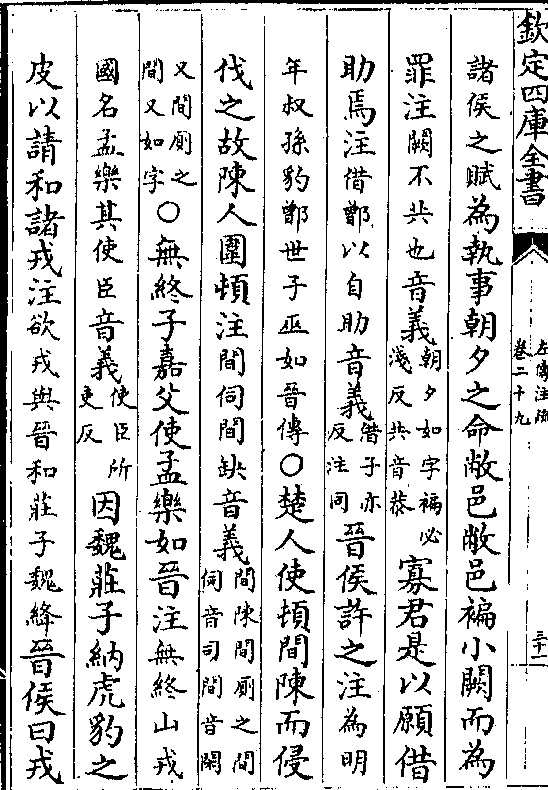 欽定四庫全書
左傳注疏
卷二十九
三十一
諸侯之賦為執事朝夕之命敝邑敝邑褊小闕而為
罪注闕不共也音義朝夕如字褊必淺反共音恭寡君是以願借
助焉注借鄫以自助音義借子亦反注同晉侯許之注為明
年叔孫豹鄫世子巫如晉傳○楚人使頓間陳而侵
伐之故陳人圍頓注間伺間缺音義間陳間厠之間伺音司間音閑
又間厠之間又如字○無終子嘉父使孟樂如晉注無終山戎
國名孟樂其使臣音義使臣所吏反因魏莊子納虎豹之
皮以請和諸戎注欲戎與晉和莊子魏絳晉侯曰戎